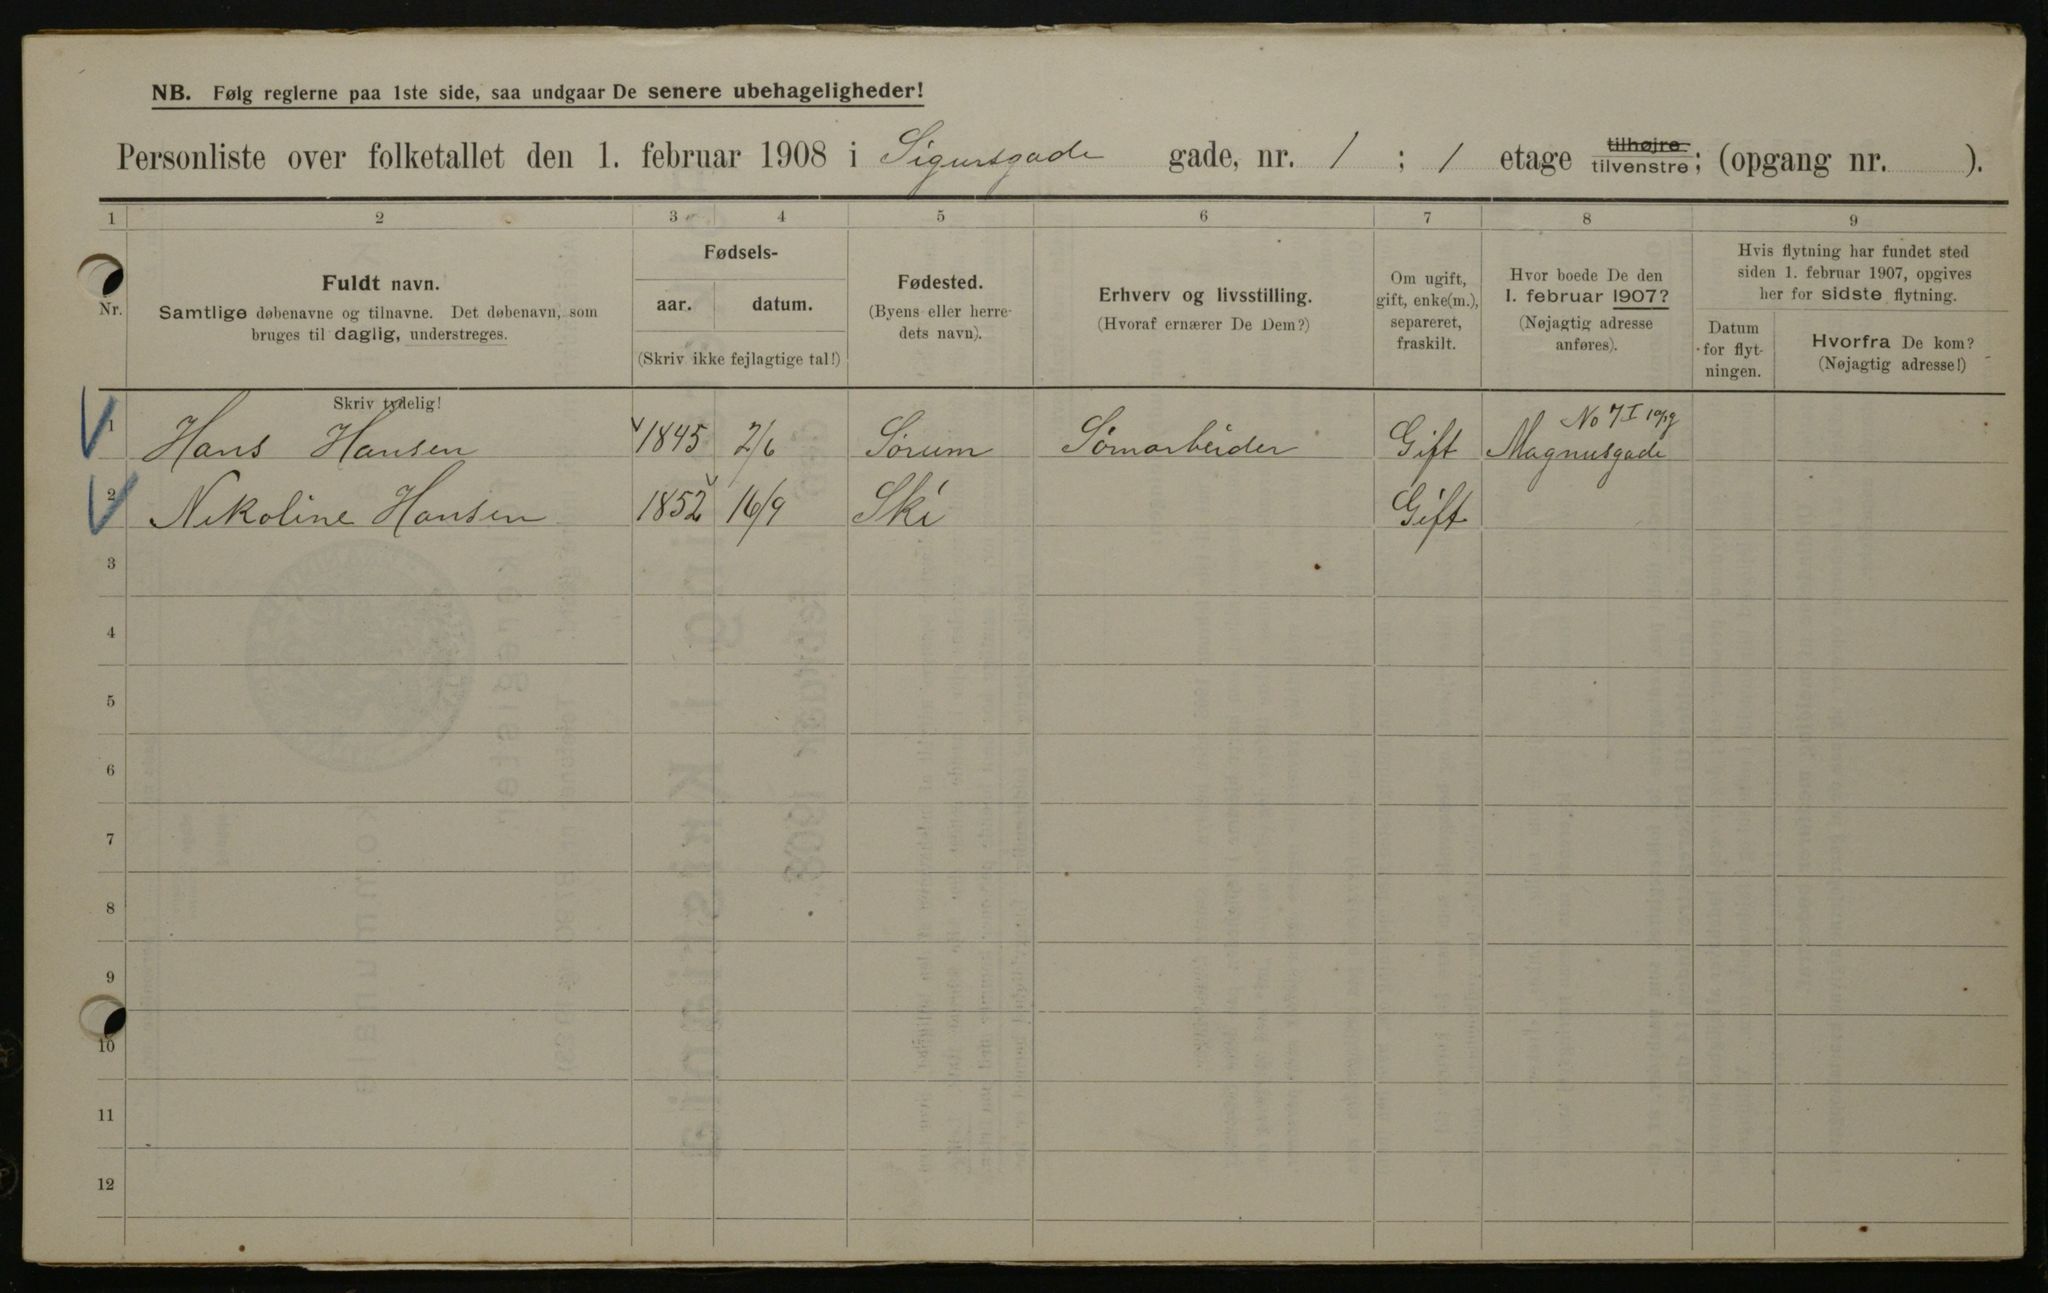 NB. Følg reglerne paa 1ste side, saa undgaar De senere ubehageligheder!
Personliste over folketallet den 1. februar 1908 i Sigursgade gade, nr. 1 ; 1 etage tilhøjre tilvenstre; (opgang nr. ).
1 2 3 4 5 6 7 8 9
Nr.
Fuldt navn.
Samtlige døbenavne og tilnavne. Det døbenavn, som
bruges til daglig, understreges.
Skriv tydelig!
Fødsels-
aar. datum.
(Skriv ikke fejlagtige tal!)
Fødested.
(Byens eller herre-
dets navn).
Erhverv og livsstilling.
(Hvoraf ernærer De Dem?)
Om ugift,
gift, enke(m.),
separeret,
fraskilt.
Hvor boede De den
1. februar 1907?
(Nøjagtig adresse
anføres).
Hvis flytning har fundet sted
siden 1. februar 1907, opgives
her for sidste flytning.
Datum
for flyt-
ningen.
Hvorfra De kom?
(Nøjagtig adresse!)
No 7 I
1 Hans Hansen 1845 2/6 Sørum Sømarbeider Gift Magnusgade
2 Nikoline Hansen 1852 16/9 Ski Gift
3
4
5
6
7
8
9
10
11
12